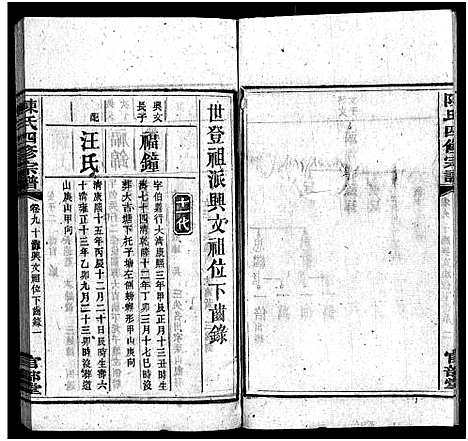 陳氏四修宗譜
世登祖派興文祖位下齒錄
十一代
興文長子
福鐘
字伯嘉行大清康熙三年甲辰正月十三丑時生
壽七十四清乾隆十二年丁卯三月十七巳時沒
葬大吉塘下托子塘左側螃蟹形甲山庚向
配
汪氏
清康熙十五年丙辰十二月二十日辰時生壽六
十清雍正十三年乙卯九月二十三卯時沒葬道
山庚山甲向
陳氏四修宗譜
卷九十 灘興文祖位下齒錄 一
官部堂